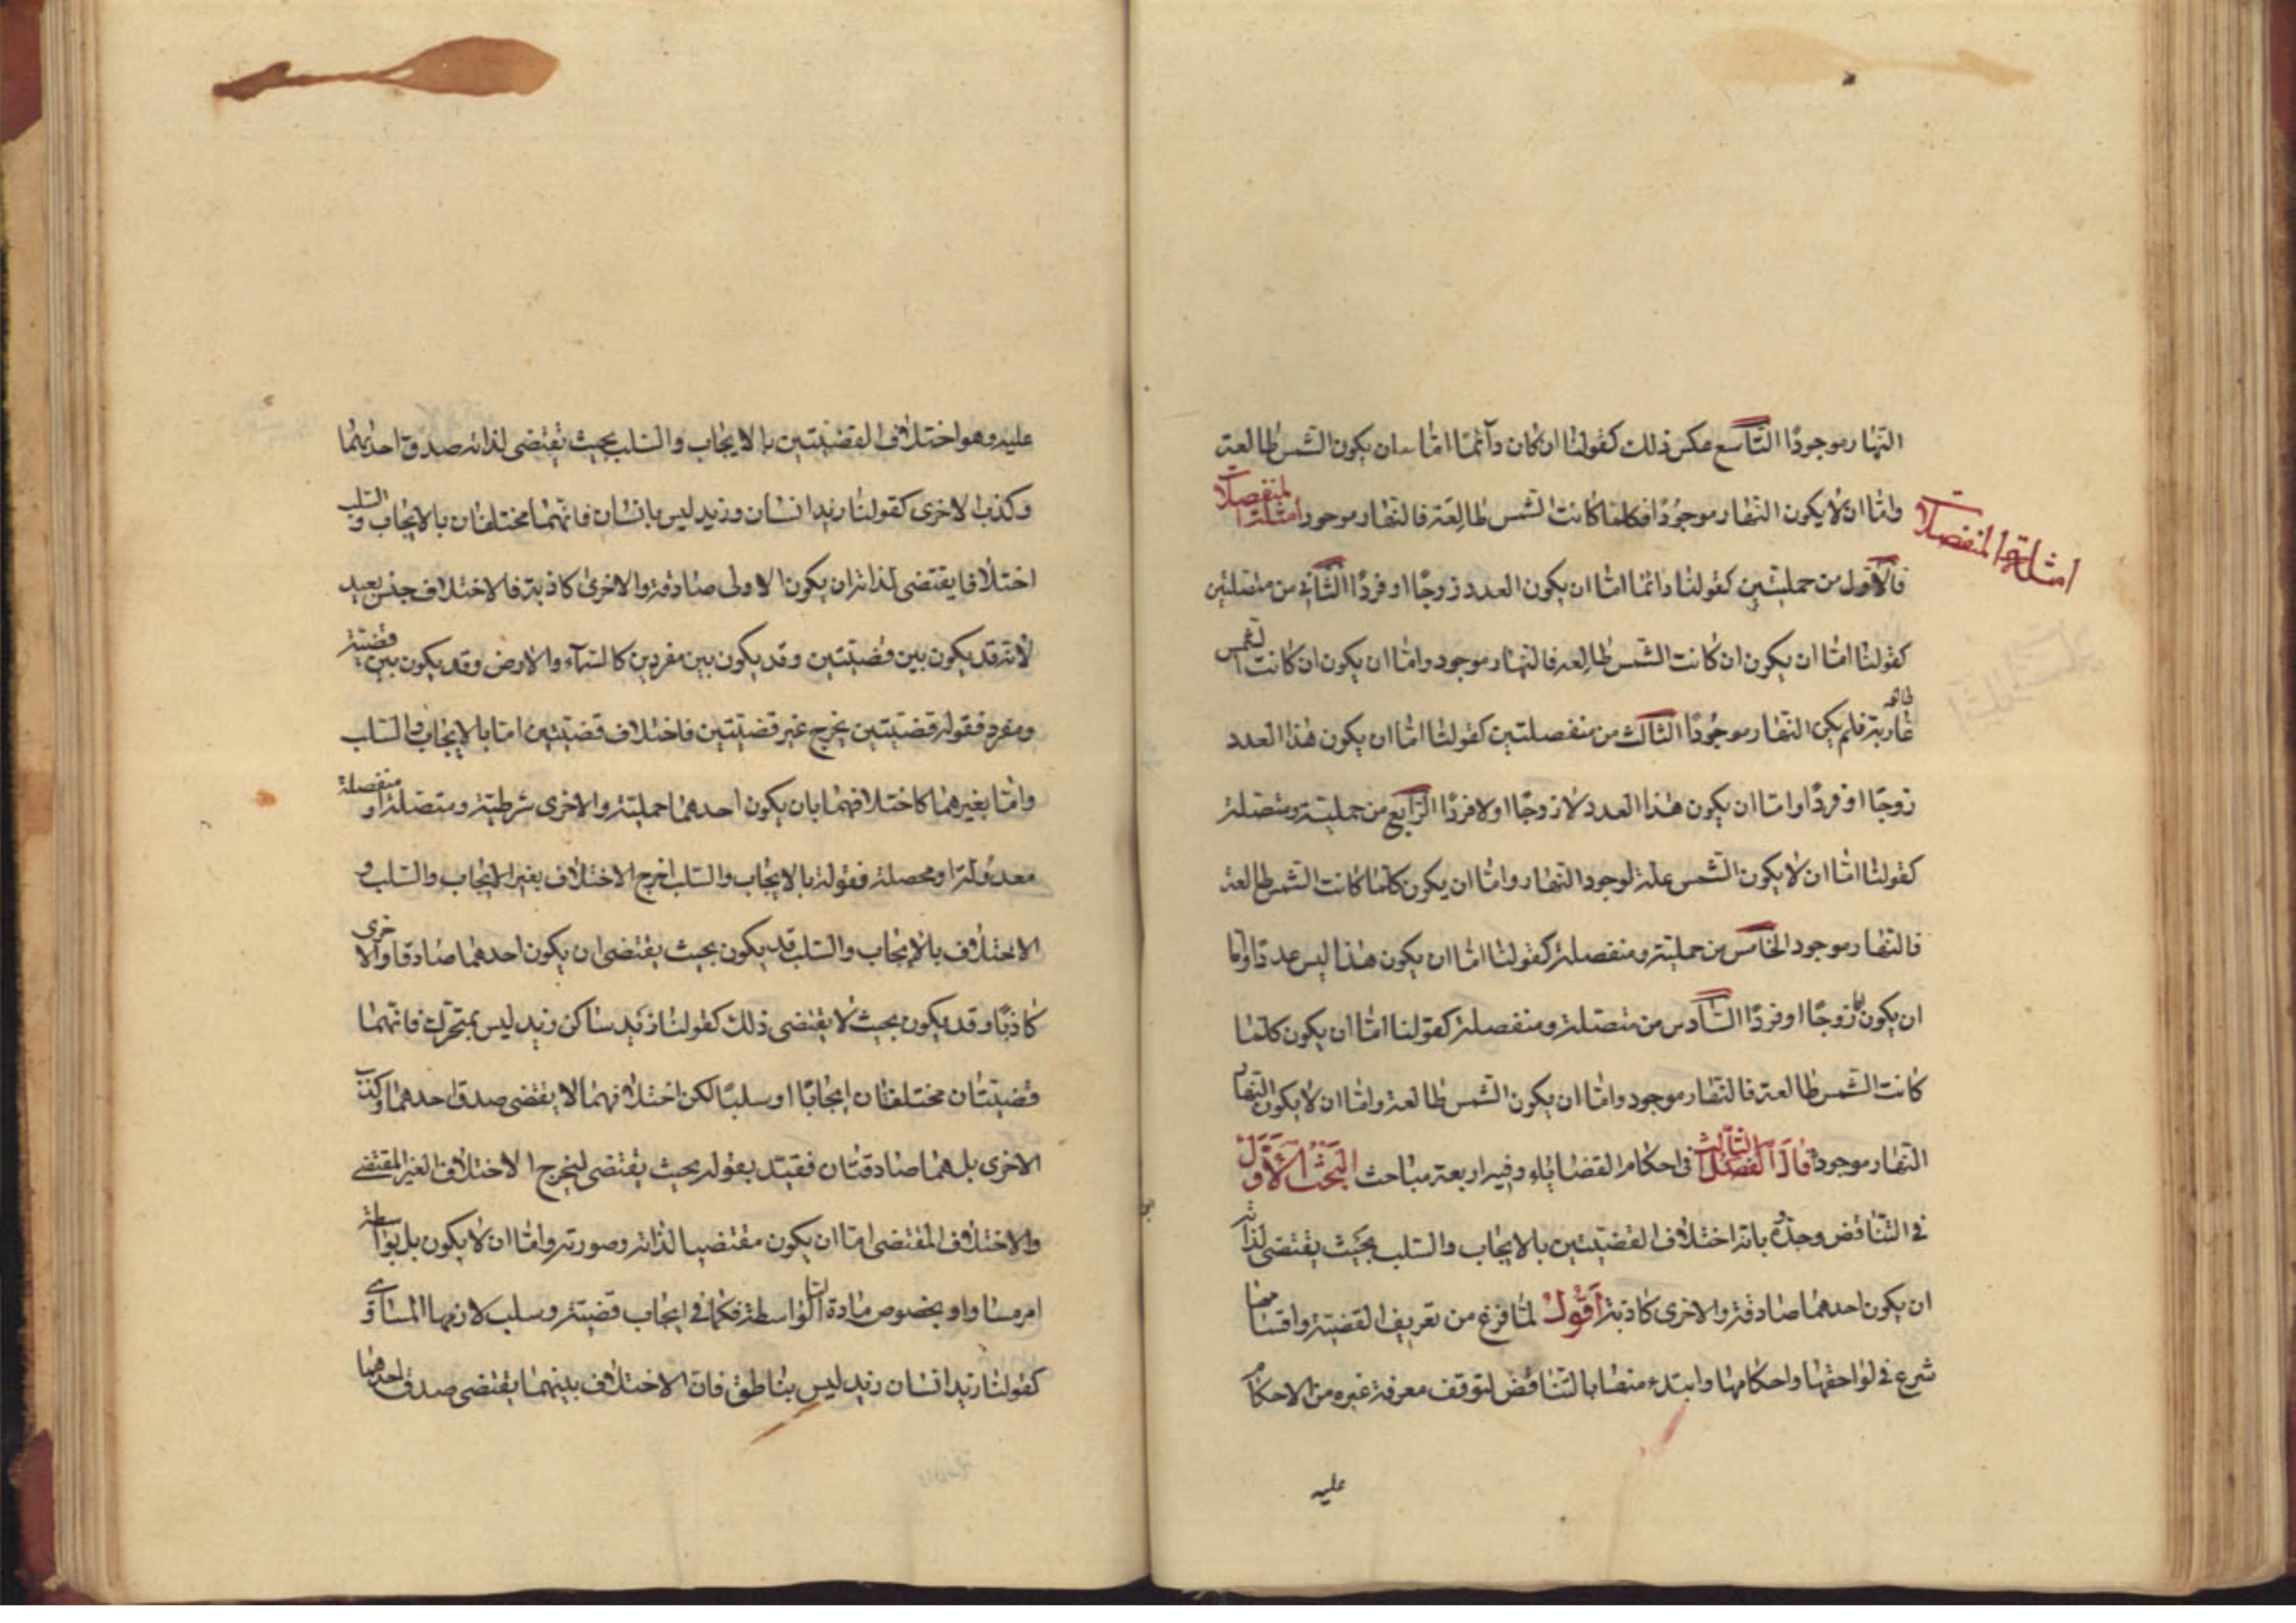 النهار موجودًا التاسع عكس ذلك كقولنا ان كان دآئمًا امّا ان يكون الشمس طالعة
وامّا ان لا يكون النهار موجودًا فكلما كانت الشمس طالعة فالنهار موجود امثلة المنفصلات
امثلة المنفصلات
فالاول من حمليتين كقولنا دائما امّا ان يكون العدد زوجًا او فردًا الثاني من متصلتين
كقولنا امّا ان يكون ان كانت الشمس طالعة فالنهار موجود وامّا ان يكون ان كانت الشمس
غاربة فلم يكن النهار موجودًا الثالث من منفصلتين كقولنا امّا ان يكون هذا العدد
زوجًا او فردًا وامّا ان يكون هذا العدد لا زوجًا او لا فردًا الرابع من حملية ومتصلة
كقولنا امّا ان لا يكون الشمس علة لوجود النهار وامّا ان يكون كلما كانت الشمس طالعة
فالنهار موجود الخامس من حملية ومنفصلة كقولنا امّا ان يكون هذا ليس عددًا وامّا
ان يكون امّا زوجًا او فردًا السادس من متصلة ومنفصلة كقولنا امّا ان يكون كلما
كانت الشمس طالعة فالنهار موجود وامّا ان يكون الشمس طالعة وامّا ان لا يكون النهار
النهار موجودا قال الفصل الثالث في احكام القضايا وفيه اربعة مباحث البحث الاول
في التناقض وحدّه بانه اختلاف القضيتين بالايجاب والسلب بحيث يقتضى لذاته
ان يكون احدهما صادقة والاخرى كاذبة اقول لمّا فرغ من تعريف القضية واقسامها
شرع في لواحقها واحكامها وابتدء منها بالتناقض لتوقف معرفة غيره من الاحكام
عليه
عليه وهو اختلاف القضيتين بالايجاب والسلب بحيث يقتضى لذاته صدق احدهما
وكذب الاخرى كقولنا زيد انسان وزيد ليس بانسان فانهما مختلفان بالايجاب والسلب
اختلافا يقتضى لذاته ان يكون الاولى صادقة والاخرى كاذبة فالاختلاف جنس بعيد
لانه قد يكون بين قضيتين وقد يكون بين مفردين كالسمآء والارض وقد يكون بين قضية
ومفرد فقوله قضيتين يخرج غير قضيتين فاختلاف قضيتين امّا بالايجاب والسلب
وامّا بغيرهما كاختلافهما بان يكون احدهما حملية والاخرى شرطية ومتصلة او منفصلة
معدولة او محصلة فقوله بالايجاب والسلب اخرج الاختلاف بغير الايجاب والسلب و
الاختلاف بالايجاب والسلب قد يكون بحيث يقتضى ان يكون احدهما صادقا والاخرى
كاذبًا وقد يكون بحيث لا يقتضى ذلك كقولنا زيد ساكن زيد ليس بمتحرك فانهما
قضيتان مختلفتان ايجابًا او سلبًا لكن اختلافهما لا يقتضى صدق احدهما وكذب
الاخرى بل هما صادقتان فقيّد بقوله بحيث يقتضى ليخرج الاختلاف الغير المقتضى
والاختلاف المقتضى امّا ان يكون مقتضيا لذاته وصورته وامّا ان لا يكون بل بواسطة
امر مساو او بخصوص مادة امّا الواسطة فكما في ايجاب قضية وسلب لازمها المساوى
كقولنا زيد انسان زيد ليس بناطق فان الاختلاف بينهما يقتضى صدق احدهما